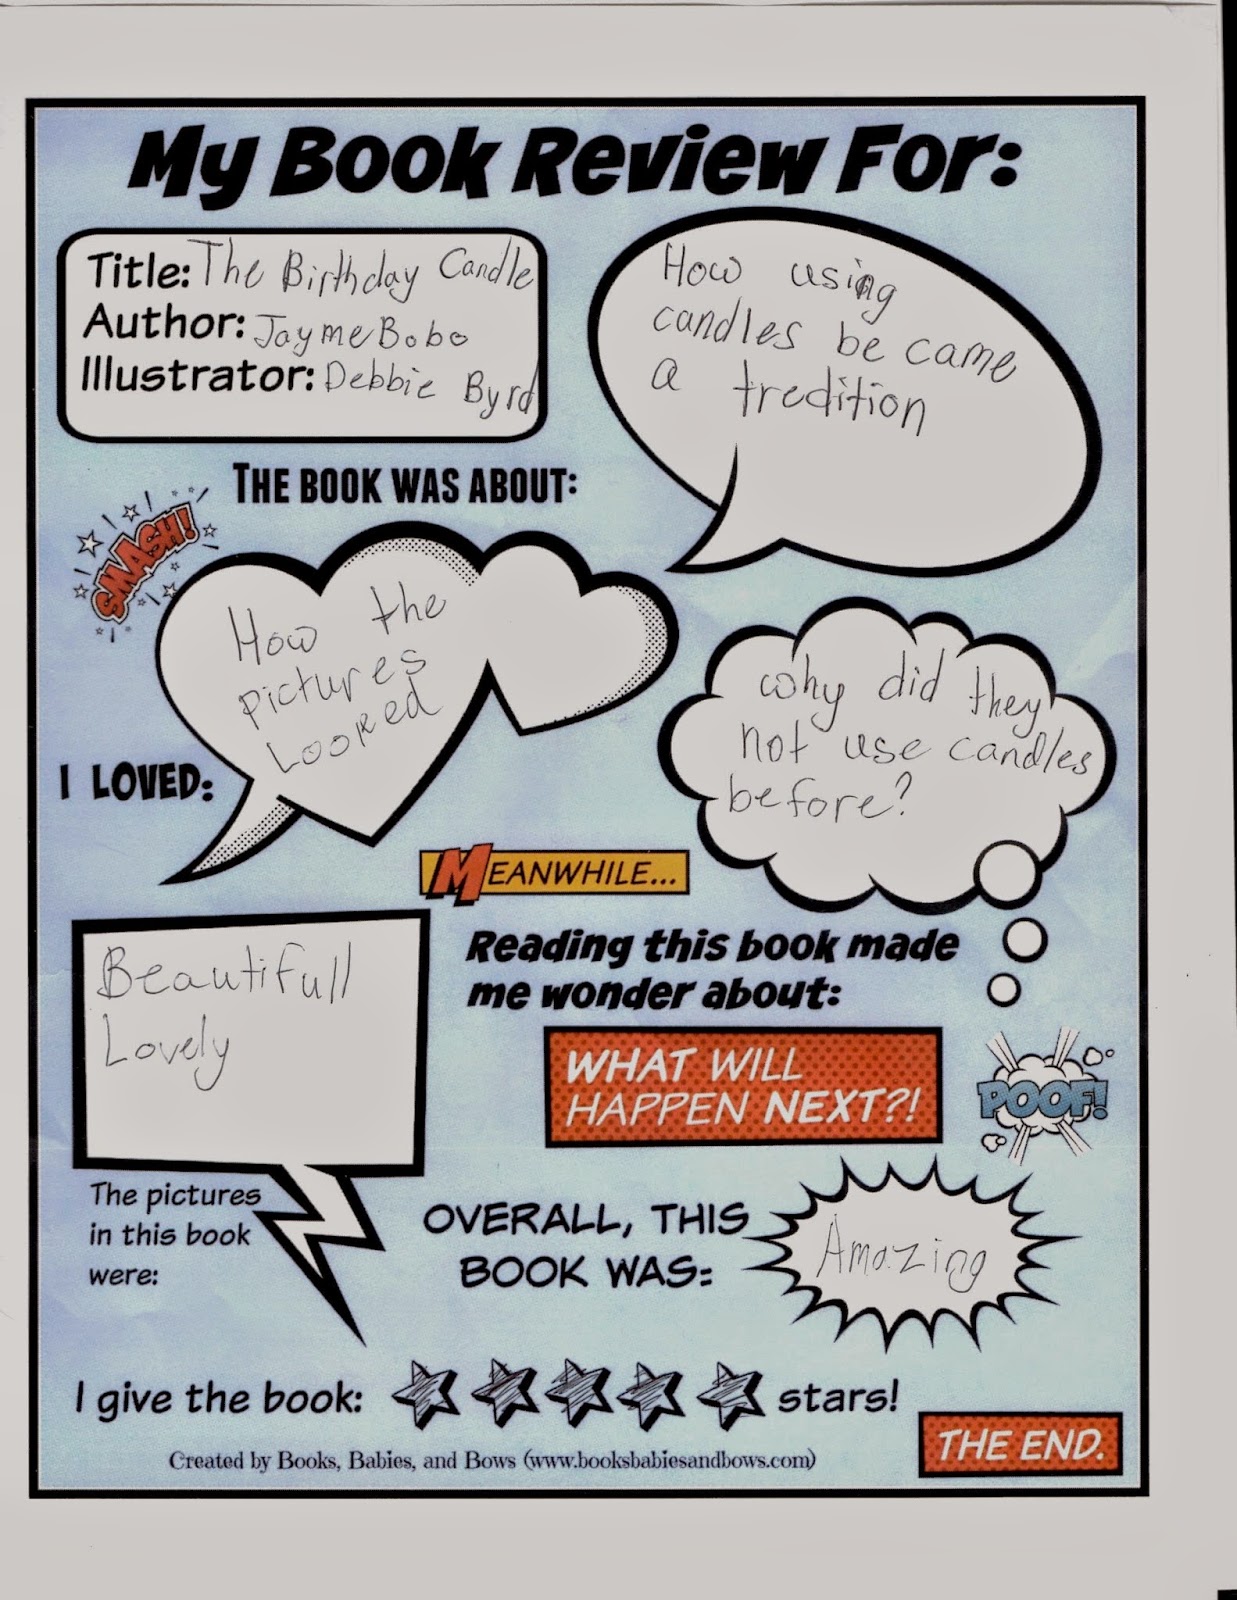 My Book Review For:
Title: The Birthday Candle
Author: Jayme Bobo
Illustrator: Debbie Byrd
How using
candles be came
a tredition
THE BOOK WAS ABOUT:
SMASH!
How the
pictures
Looked
I LOVED:
why did they
not use candles
before?
MEANWHILE...
Reading this book made
me wonder about:
Beautifull
Lovely
WHAT WILL
HAPPEN NEXT?!
POOF!
The pictures
in this book
were:
OVERALL, THIS
BOOK WAS:
Amazing
I give the book: stars!
THE END.
Created by Books, Babies, and Bows (www.booksbabiesandbows.com)